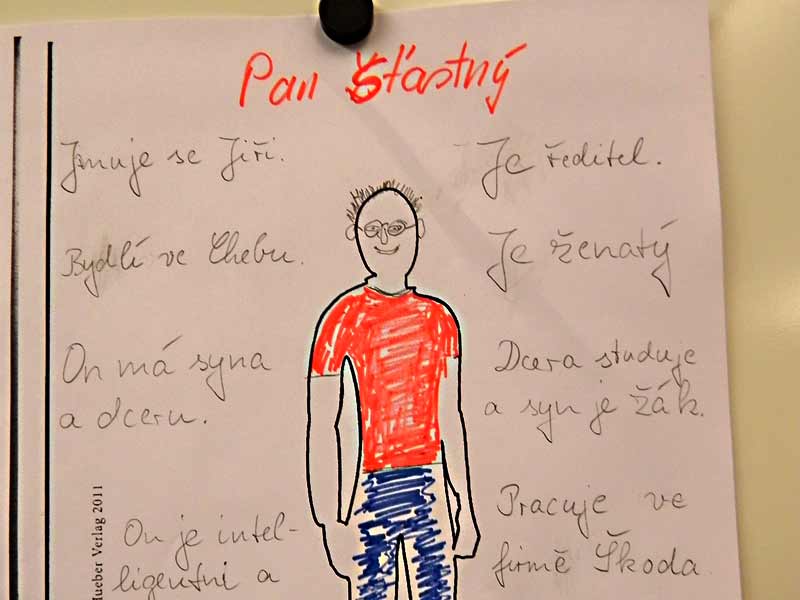 Pan Šťastný
Jmuje se Jiří.
Bydlí ve Chebu.
On má syna
a dceru.
On je intel-
ligentní a
Je ředitel.
Je ženatý
Dcera studuje
a syn je žák.
Pracuje ve
firmě Škoda
Hueber Verlag 2011